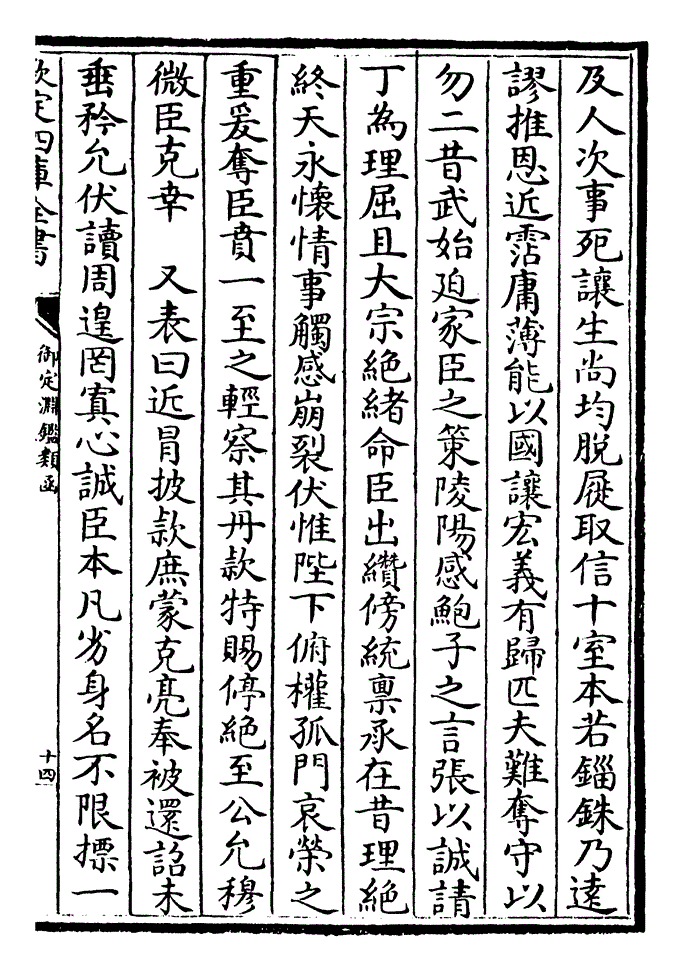 及人次事死讓生尚均脫屣取信十室本若錙銖乃遠
謬推恩近霑庸薄能以國讓宏義有歸匹夫難奪守以
勿二昔武始迫家臣之策陵陽感鮑子之言張以誠請
丁為理屈且大宗絶緒命臣出纘傍統稟承在昔理絶
終天永懷情事觸感崩裂伏惟陛下俯權孤門哀榮之
重爰奪臣賁一至之輕察其丹款特賜停絶至公允穆
微臣克幸　又表曰近冐披款庶蒙克亮奉被還詔未
垂矜允伏讀周遑罔寘心誠臣本凡劣身名不限摽一
欽定四庫全書
御定淵鑑類函
十四